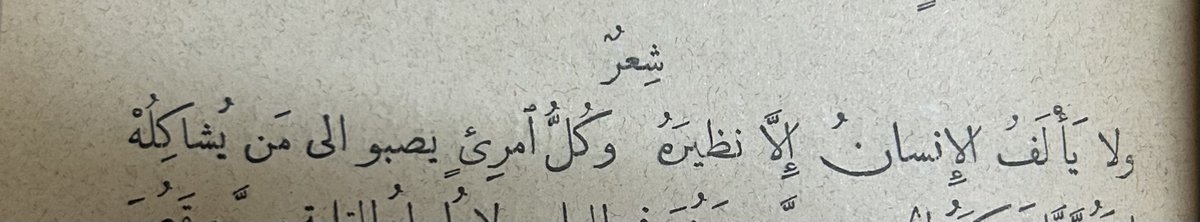 شِعرٌ
ولا يَأْلَفُ الإِنسانُ إِلَّا نظيرَهُ وكُلُّ ٱمرِئٍ يصبو الى مَن يُشاكِلُهْ